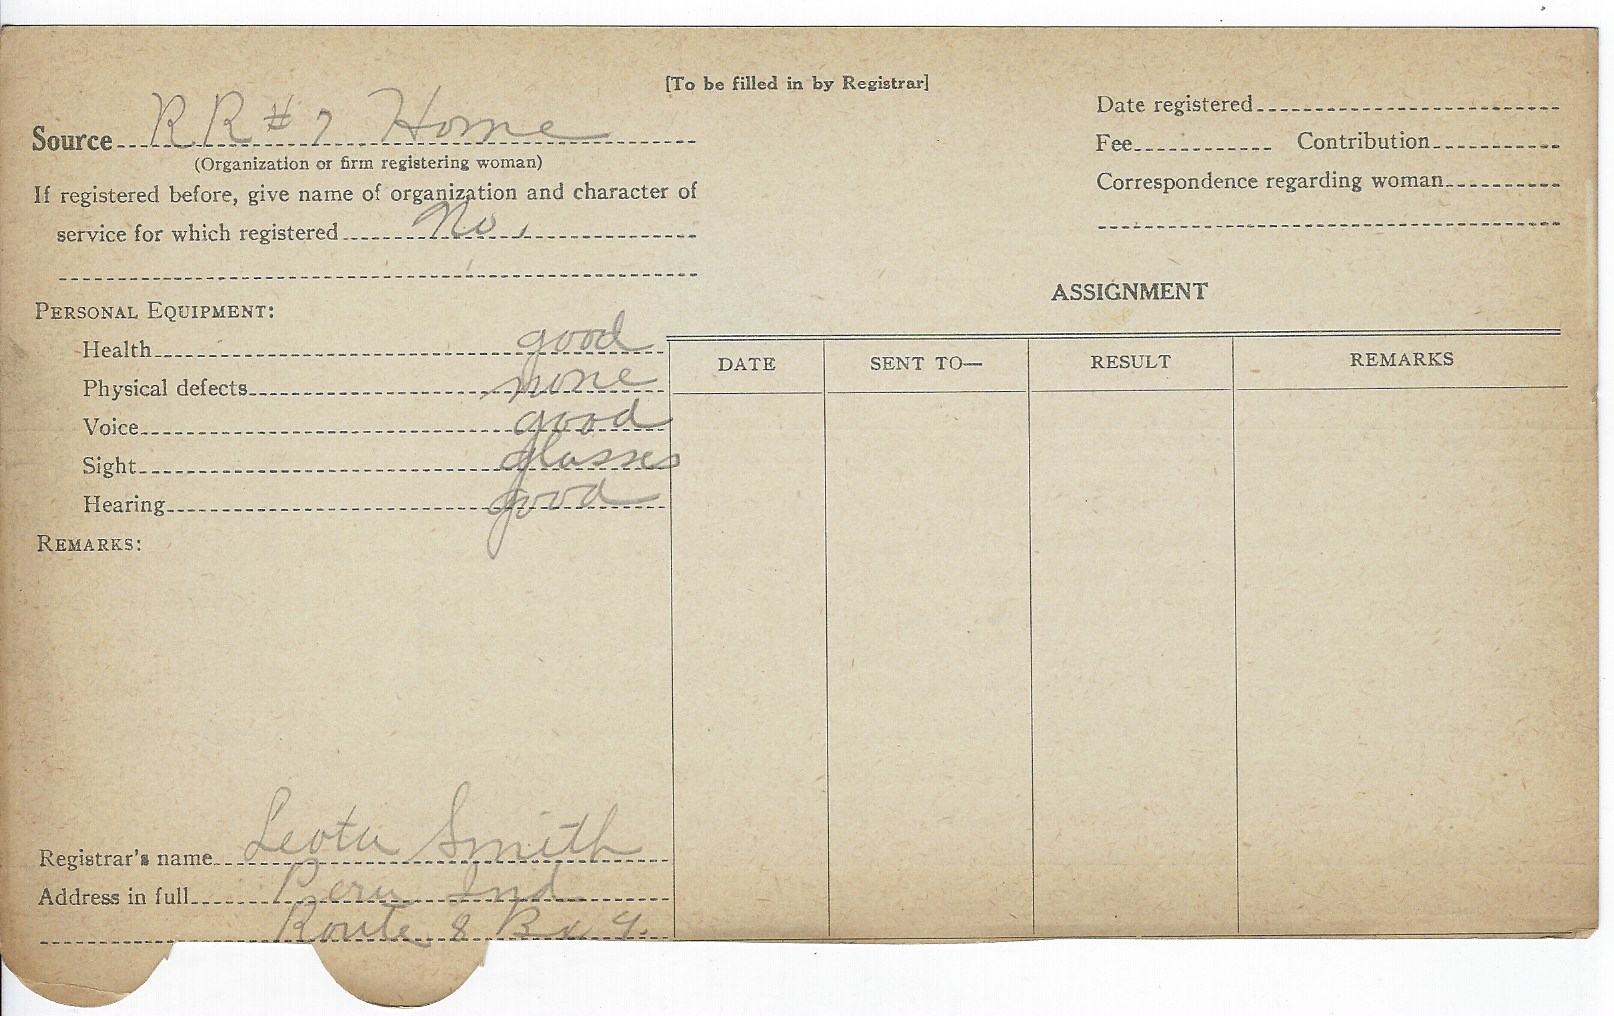 [To be filled in by Registrar]
Source RR#7 Home
(Organization or firm registering woman)
If registered before, give name of organization and character of
service for which registered No.
Date registered
Fee Contribution
Correspondence regarding woman
PERSONAL EQUIPMENT:
Health good
Physical defects none
Voice good
Sight glasses
Hearing good
REMARKS:
ASSIGNMENT
DATE SENT TO— RESULT REMARKS
Registrar's name Leota Smith
Address in full Peru Ind
Route 8 Bx 4.